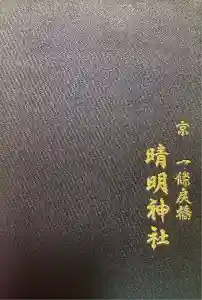 京 一條戻橋
晴明神社